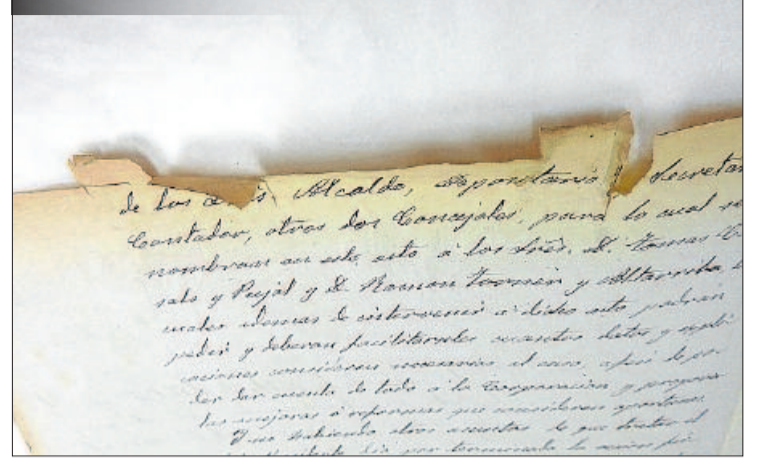 de los Alcalde, Depositario y Secretar
Contador, otros dos Concejales, para lo cual se
nombran en este acto á los Sres. D. Tomas
y Pujol y D. Ramon y Altarriba
cuales ademas de intervenir á dicho acto podrán
pedir y deberan facilitarseles cuantos datos y expli-
caciones consideren necesarias al caso, á fin de po-
der dar cuenta de todo á la Corporacion y proponer
las mejoras ó reformas que consideren oportunas.
habiendo otros asuntos de que tratar el
dia por terminada la sesion